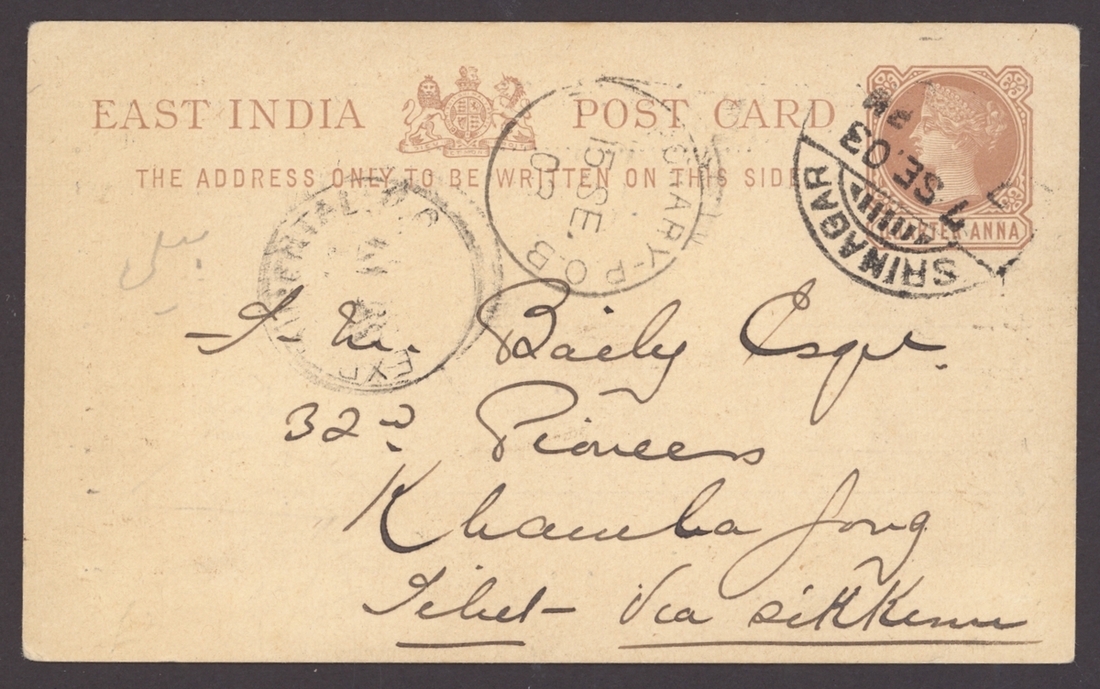 EAST INDIA POST CARD
THE ADDRESS ONLY TO BE WRITTEN ON THIS SIDE
SRINAGAR
7 SE.03
15 SE.
03
P.O.B
F. M. Baily Esqre
32nd Pioneers
Khamba Jong
Tibet - Via Sikkim